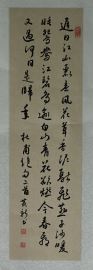 遲日江山麗春風花草香泥融飛燕子沙暖
睡鴛鴦江碧鳥逾白山青花欲燃今春看
又過何日是歸年 杜甫絕句二首